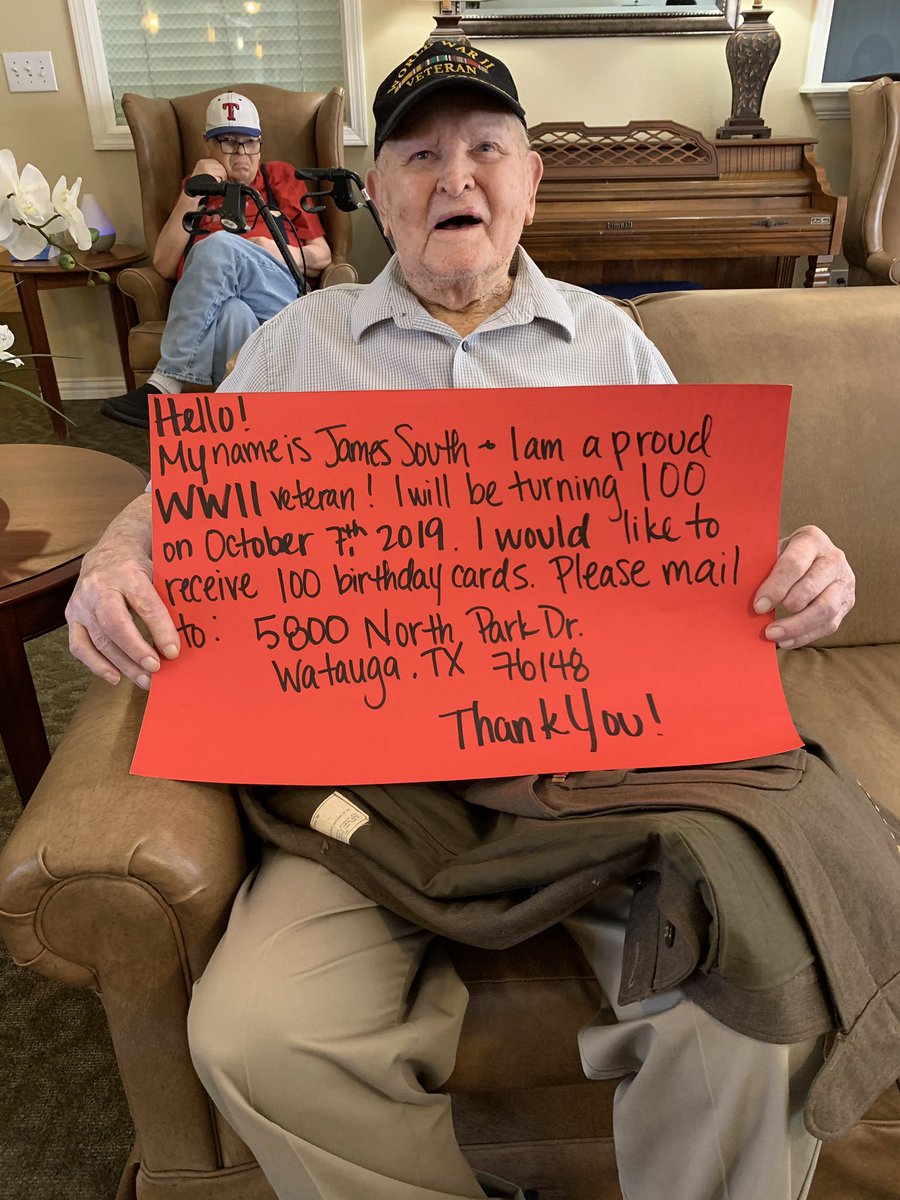 WORLD WAR II
VETERAN
T
Hello!
My name is James South + I am a proud
WWII veteran! I will be turning 100
on October 7th, 2019. I would like to
receive 100 birthday cards. Please mail
to: 5800 North Park Dr.
Watauga, TX 76148
Thank You!